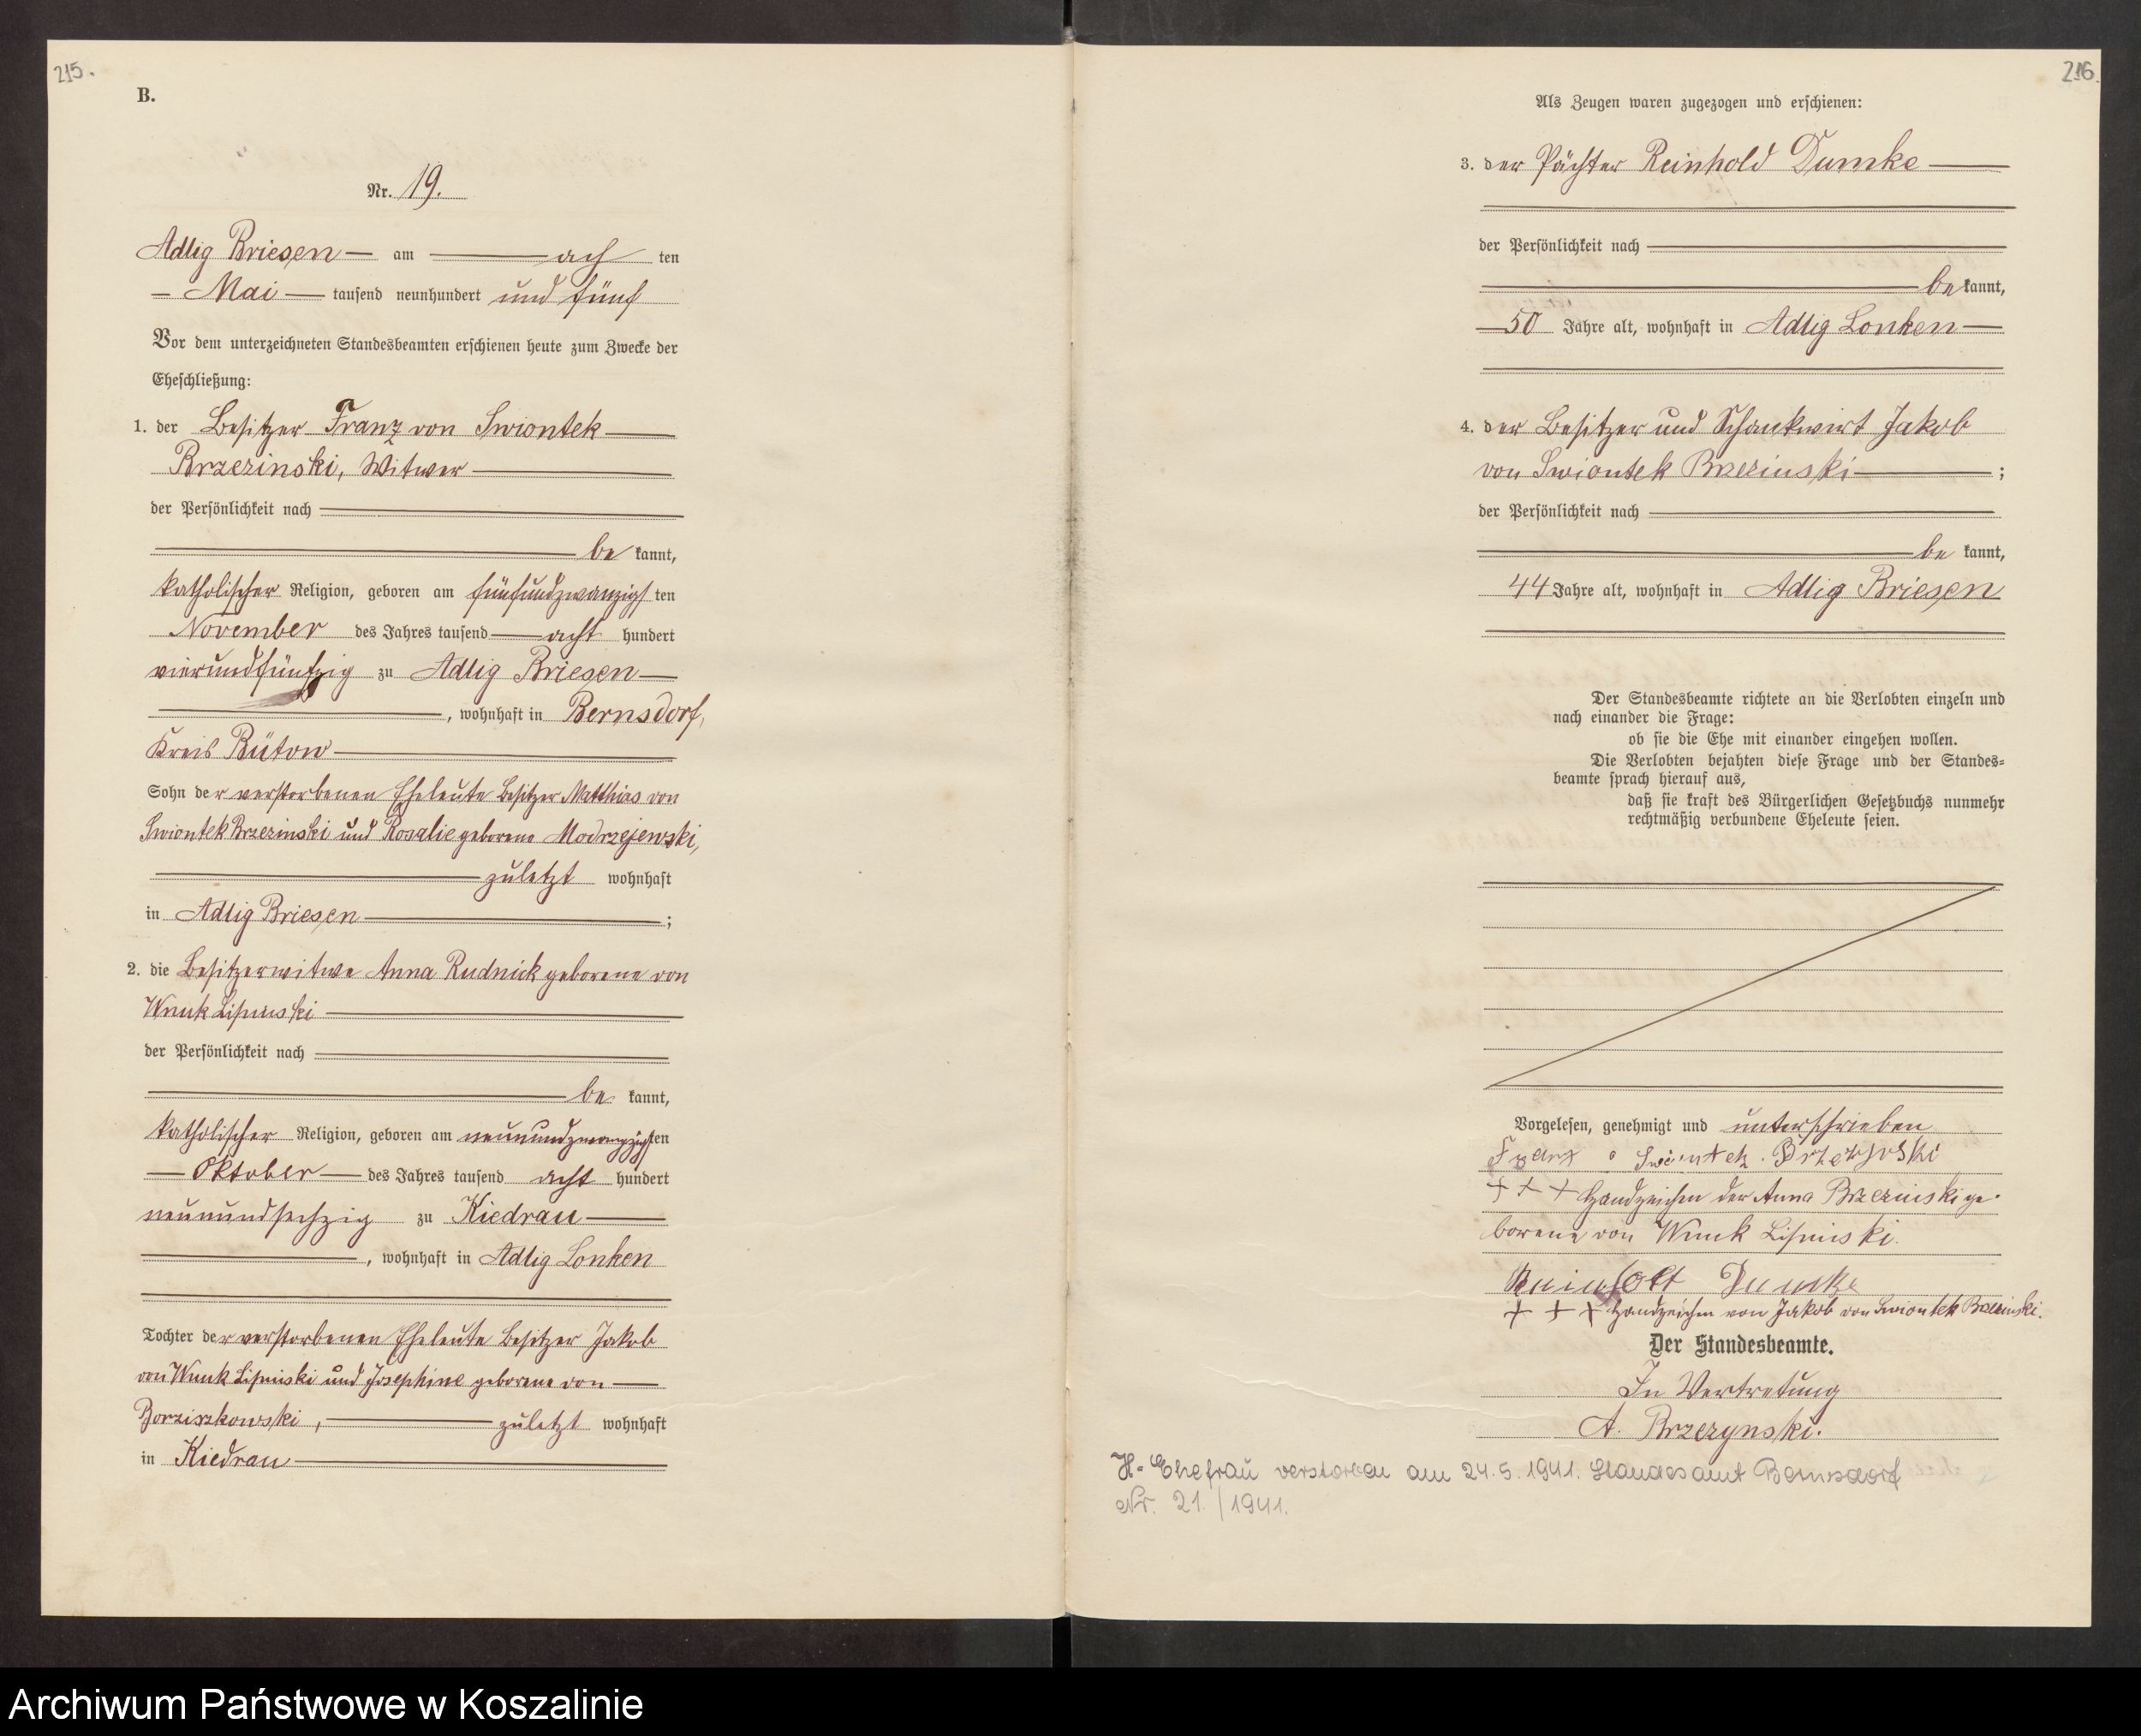 215.
B.
Nr. 19.
Adlig Briesen — am — ach ten
— Mai — tausend neunhundert und fünf
Vor dem unterzeichneten Standesbeamten erschienen heute zum Zwecke der
Eheschließung:
1. der Besitzer Franz von Swiontek —
Brzezinski, Witwer —
der Persönlichkeit nach —
— be kannt,
katholischer Religion, geboren am fünfundzwanzigsten
November des Jahres tausend — acht hundert
vierundfünfzig zu Adlig Briesen —
—, wohnhaft in Bernsdorf,
Kreis Bütow —
Sohn der verstorbenen Eheleute Besitzer Matthias von
Swiontek Brzezinski und Rosalie geborene Modrzejewski,
— zuletzt wohnhaft
in Adlig Briesen — ;
2. die Besitzerwitwe Anna Rudnick geborene von
Wnuk Lipinski —
der Persönlichkeit nach —
— be kannt,
katholischer Religion, geboren am neunundzwanzigsten
— Oktober — des Jahres tausend acht hundert
neunundsechzig zu Kiedrau —
—, wohnhaft in Adlig Lonken
Tochter der verstorbenen Eheleute Besitzer Jakob
von Wnuk Lipinski und Josephine geborene von —
Borziszkowski, — zuletzt wohnhaft
in Kiedrau —
216.
Als Zeugen waren zugezogen und erschienen:
3. der Pächter Reinhold Dumke —
der Persönlichkeit nach —
— be kannt,
— 50 Jahre alt, wohnhaft in Adlig Lonken —
4. der Besitzer und Schankwirt Jakob
von Swiontek Brzezinski — ;
der Persönlichkeit nach —
— be kannt,
44 Jahre alt, wohnhaft in Adlig Briesen
Der Standesbeamte richtete an die Verlobten einzeln und
nach einander die Frage:
ob sie die Ehe mit einander eingehen wollen.
Die Verlobten bejahten diese Frage und der Standes-
beamte sprach hierauf aus,
daß sie kraft des Bürgerlichen Gesetzbuchs nunmehr
rechtmäßig verbundene Eheleute seien.
Vorgelesen, genehmigt und unterschrieben
Franz Swiontek Brzezinski
+ + + Handzeichen der Anna Brzezinski ge-
borene von Wnuk Lipinski.
Reinholt Dumke
+ + + Handzeichen von Jakob von Swiontek Brzezinski.
Der Standesbeamte.
In Vertretung
A. Brzezynski.
H. Ehefrau verstorben am 24.5.1941. Standesamt Bernsdorf
Nr. 21./1941.
Archiwum Państwowe w Koszalinie